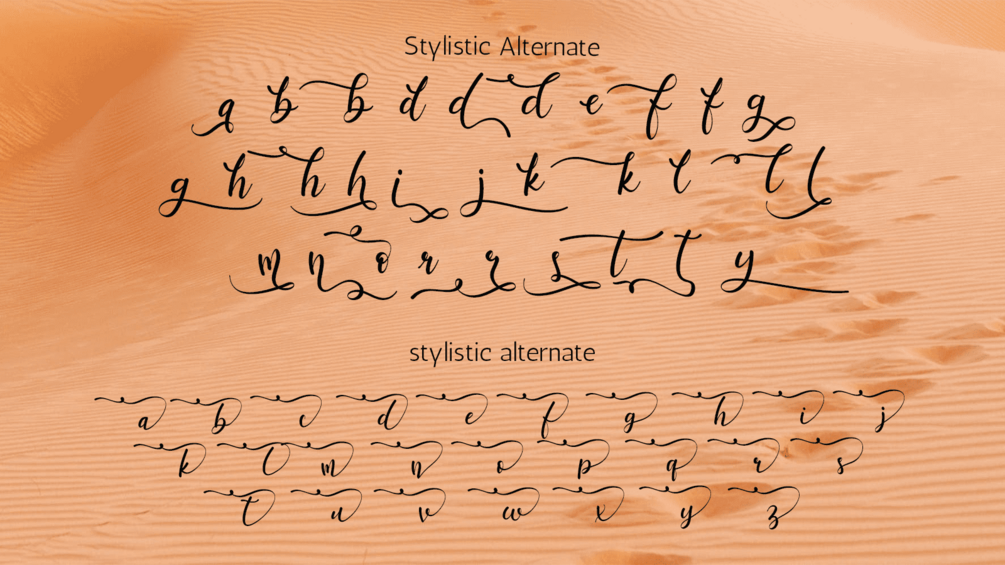 Stylistic Alternate
a b b d d d e f f g
g h h h i j k k l l l
m n o r r s t t y
stylistic alternate
a b c d e f g h i j
k l m n o p q r s
t u v w x y z